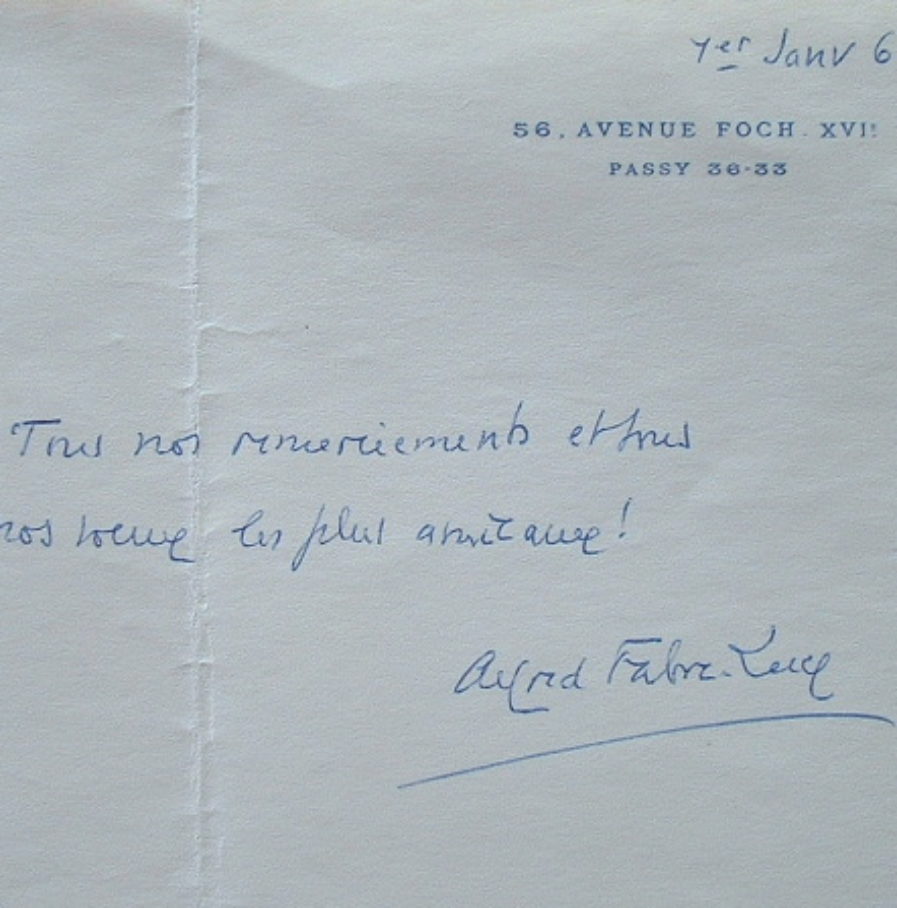 1er Janv 6
56, AVENUE FOCH. XVIE
PASSY 36-33
Tous nos remerciements et tous
nos voeux les plus amicaux!
Alfred Fabre-Luce